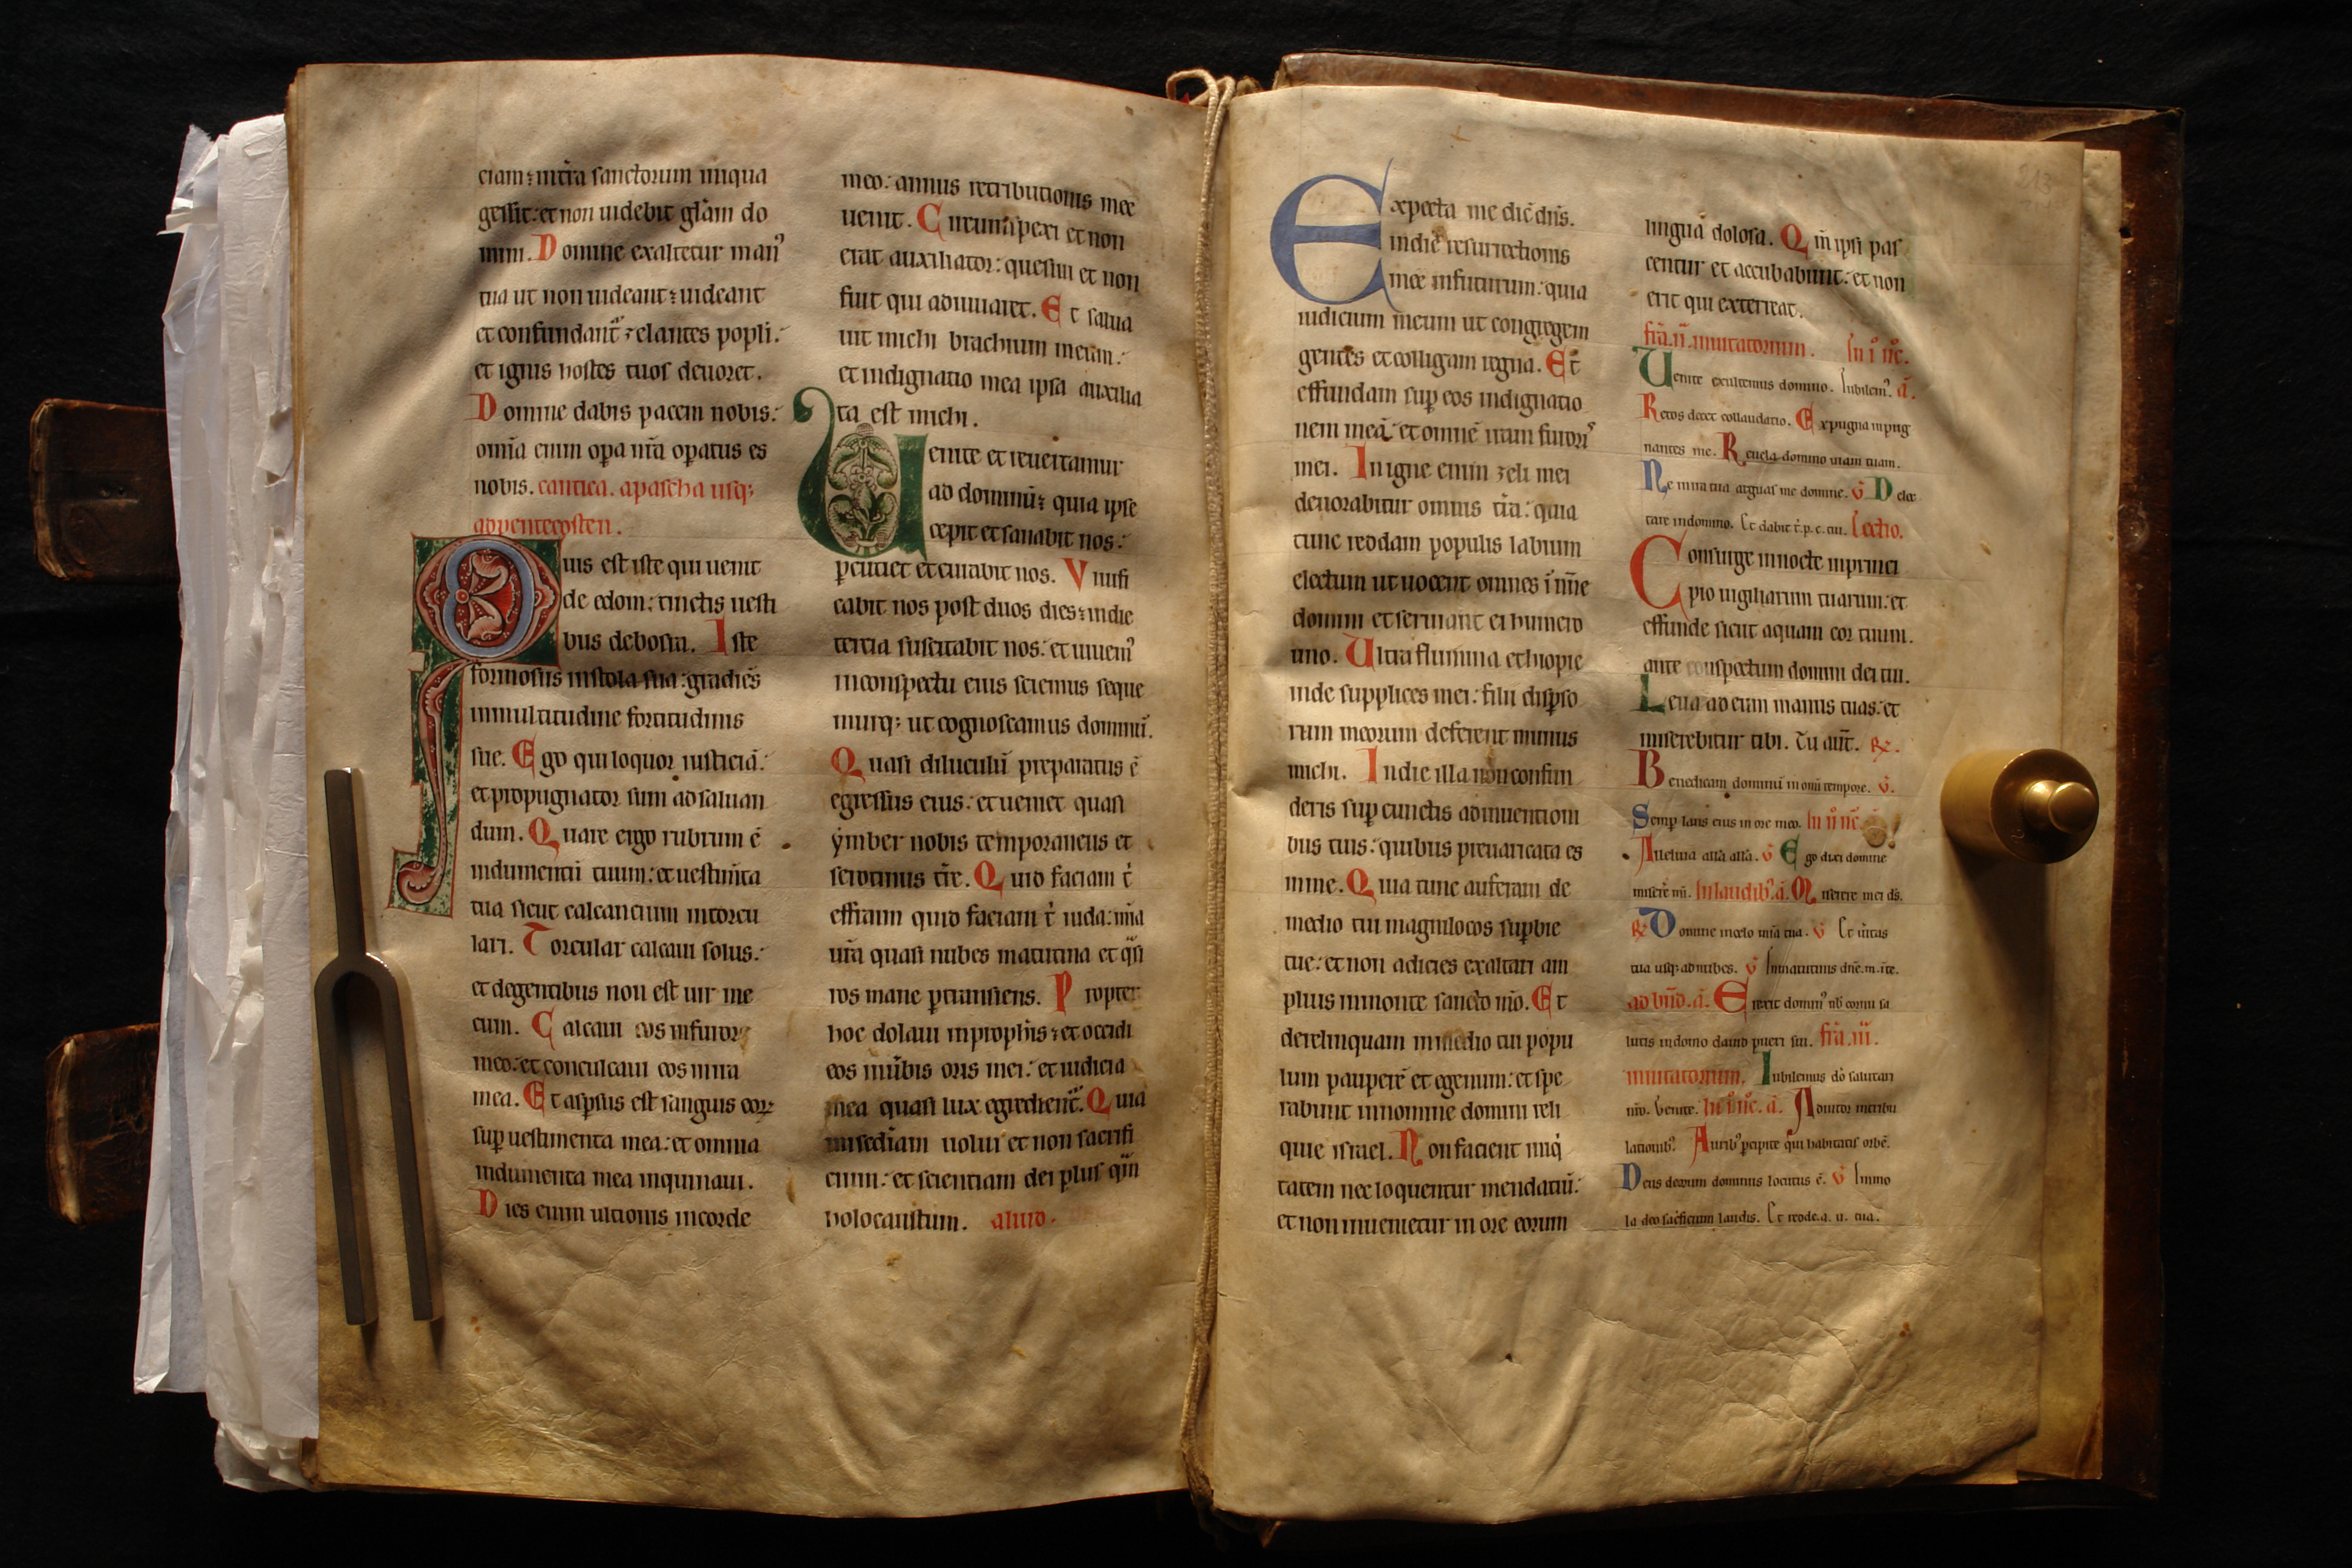 ciam: in t̄ra sanctorum iniqua
gessit: et non uidebit gl̄am do
mini. Domine exaltetur man᾿
tua ut non uideant: uideant
et confundant᷑ zelantes popli:
et ignis hostes tuos deuoret.
Domine dabis pacem nobis:
om̄ia enim op̄a n̄ra op̄atus es
nobis. cantica. a pascha usq;
ad pentecosten.
Quis est iste qui uenit
de edom: tinctis uesti
bus de bosra. Iste
formosus in stola sua: gradiēs
in multitudine fortitudinis
sue. Ego qui loquor iusticiā:
et propugnator sum ad saluan
dum. Quare ergo rubrum ē
indumentū tuum: et uestim̄ta
tua sicut calcantium in torcu
lari. Torcular calcaui solus:
et de gentibus non est uir me
cum. Calcaui eos in furore
meo: et conculcaui eos in ira
mea. Et asp̄sus est sanguis eoꝝ
sup̄ uestimenta mea: et omnia
indumenta mea inquinaui.
Dies enim ultionis in corde
meo: annus retributionis mee
uenit. Circumspexi et non
erat auxiliator: quesiui et non
fuit qui adiuuaret. Et salua
uit michi brachium meum:
et indignatio mea ipsa auxilia
ta est michi.
Uenite et reuertamur
ad dominū: quia ipse
cepit et sanabit nos:
percutiet et curabit nos. Viuifi
cabit nos post duos dies: in die
tercia suscitabit nos: et uiuem᾿
in conspectu eius sciemus seque
murq; ut cognoscamus dominū.
Quasi diluculū preparatus ē
egressus eius: et ueniet quasi
ẏmber nobis temporaneus et
serotinus t̄re. Quid faciam t̄
effraim quid faciam t̄ iuda: mīa
ur̄a quasi nubes matutina et q̄si
ros mane p̄transiens. Propter
hoc dolaui in proph̄is: et occidi
eos in ūbis oris mei: et iudicia
mea quasi lux egredient᷑. Quia
misericordiam uolui et non sacrifi
cium: et scientiam dei plus q̄m
holocaustum. aliud.
Expecta me dic̄ dn̄s.
in die resurrectionis
mee in futurum: quia
iudicium meum ut congregem
gentes et colligam regna. Et
effundam sup̄ eos indignatio
nem meā: et omnē iram furoris
mei. In igne enim zeli mei
deuorabitur omnis t̄ra: quia
tunc reddam populis labium
electum ut uocent omnes ī nōie
domini et seruiant ei humero
uno. Ultra flumina ethiopie
inde supplices mei: filii disp̄so
rum meorum deferent munus
michi. In die illa non confun
deris sup̄ cunctis adinuention
bus tuis: quibus preuaricata es
in me. Quia tunc auferam de
medio tui magniloc̄os sup̄bie
tue: et non adicies exaltari am
plius in monte sancto m̄o. Et
derelinquam in medio tui popu
lum pauperē et egenum: et spe
rabunt in nomine domini reli
quie israel. Non facient iniq̄
tatem nec loquentur mendatiū:
et non inuenietur in ore eorum
lingua dolosa. Qm̄ ipsi pas
centur et accubabunt: et non
erit qui exterreat.
fr̄a. ii. inuitatorium. In i nc̄.
Uenite exultemus domino. Iubilem᾿. ā.
Rectos decet collaudatio. Expugna inpug
nantes me. Reuela domino uiam tuam.
Ne in ira tua arguas me domine. v̄ Delec
tare in domino. Et dabit t̄. p. c. tui. Lectio.
Consurge in nocte in princi
pio uigiliarum tuarum: et
effunde sicut aquam cor tuum.
ante conspectum domini dei tui.
Leua ad eum manus tuas: et
miserebitur tibi. Tu aut̄. ℞.
Benedicam dominū in omni tempore. v̄.
Semp̄ laus eius in ore meo. In ii nc̄.
Alleluia all̄a all̄a. v̄ Ego dixi domine
miserē mī. In laudib᾿. ā. Miserere mei ds̄.
℞ Domine in celo mīa tua. v̄ Et ūitas
tua usq; ad nubes. v̄ In matutinis dn̄e. m. i te.
ad bn̄d. ā. Erexit domin᾿ nob̄ cornu sa
lutis in domo dauid pueri sui. fr̄a. iii.
inuitatorium. Iubilemus dō salutari
n̄ro. Venite. In i nc̄. ā. A domitor in tribu
lationib᾿. Aurib᾿ p̄cipite qui habitatis orbē.
Deus deorum dominus locutus ē. v̄ Immo
la deo sac̄ficium laudis. Et redde. a. u. tua.